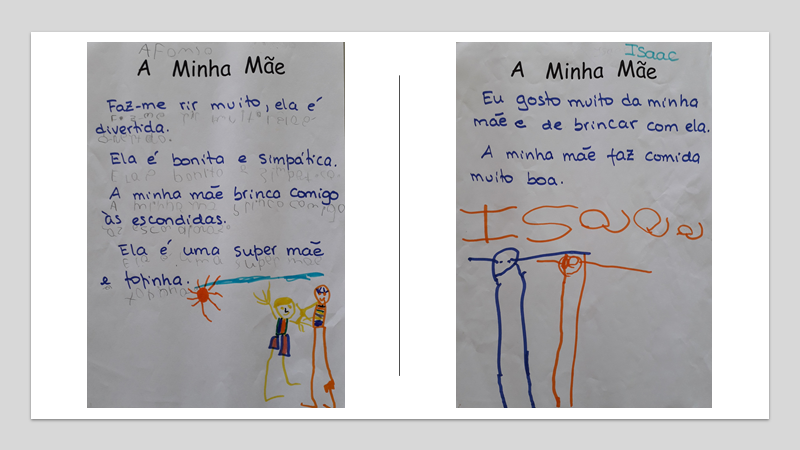 Afonso
A Minha Mãe
Faz-me rir muito, ela é
divertida.
Ela é bonita e simpática.
A minha mãe brinca comigo
às escondidas.
Ela é uma super mãe
e fofinha.
Isaac
A Minha Mãe
Eu gosto muito da minha
mãe e de brincar com ela.
A minha mãe faz comida
muito boa.